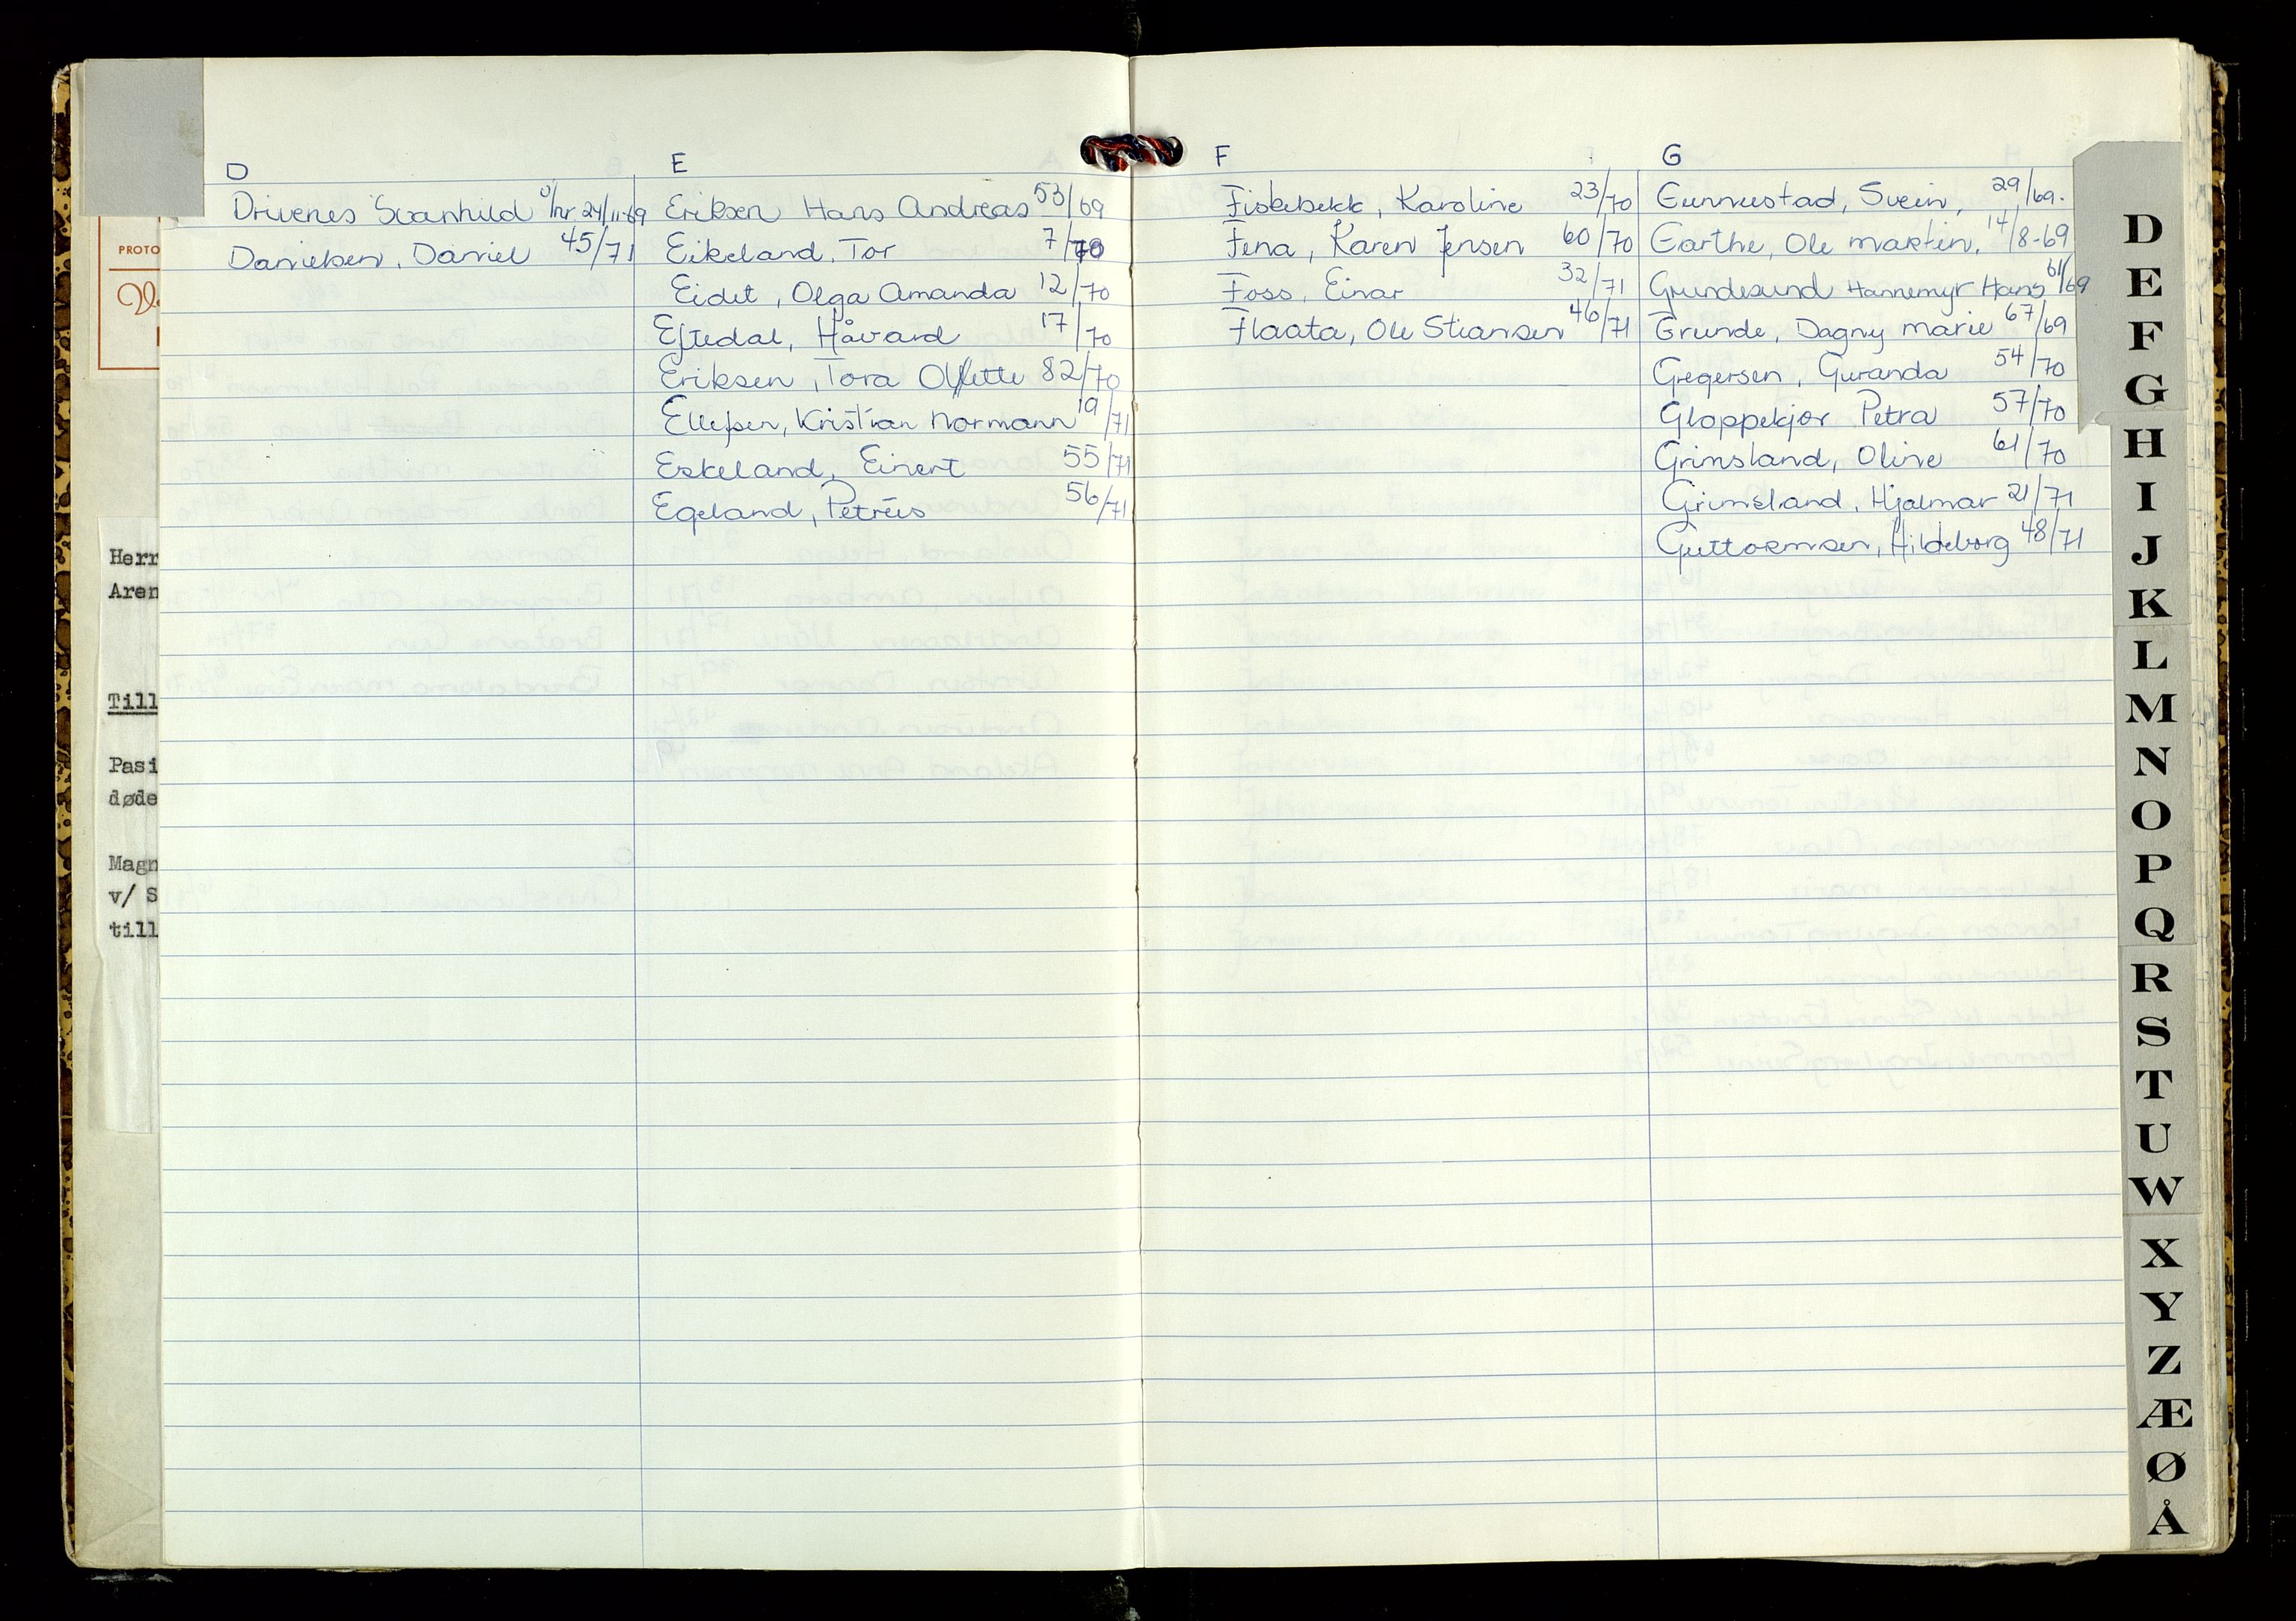 D
Drivenes Svanhild u/nr. 24/11-69
Danielsen, Daniel 45/71
E
Eriksen Hans Andreas 53/69
Eikeland, Tor 7/70
Eidet, Olga Amanda 12/70
Eftedal, Håvard 17/70
Eriksen, Tora Olette 82/70
Ellefsen, Kristian Normann 19/71
Eskeland, Einert 55/71
Egeland, Petréus 56/71
F
Fiskebekk, Karoline 23/70
Fena, Karen Jensen 60/70
Foss, Einar 32/71
Flaata, Ole Stiansen 46/71
G
Gunnestad, Svein, 29/69.
Garthe, Ole Martin, 14/8-69
Grundesund Hannemyr Hans 61/69
Grunde, Dagny Marie 67/69
Gregersen, Guranda 54/70
Gloppekjør Petra 57/70
Grimsland, Oline 61/70
Grimsland, Hjalmar 21/71
Guttormsen, Hildeborg 48/71
PROTO
Herr
Aren
Till
Pasi
døde
Magn
v/ S
till
D
E
F
G
H
I
J
K
L
M
N
O
P
Q
R
S
T
U
W
X
Y
Z
Æ
Ø
Å